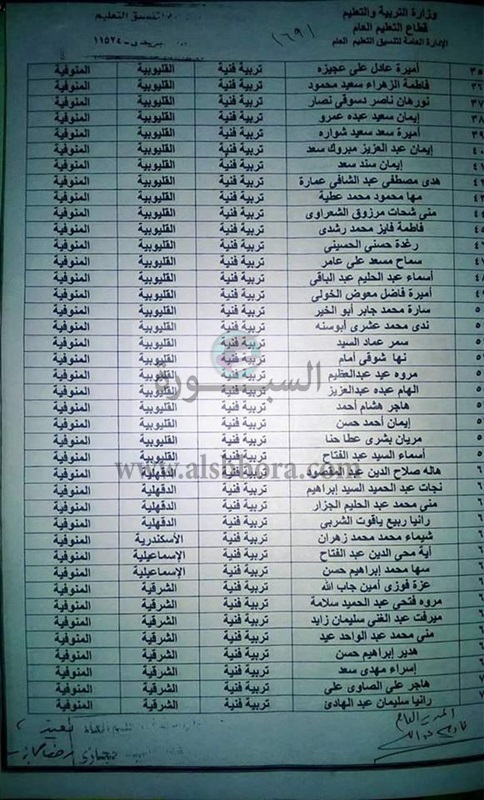 وزارة التربية والتعليم
قطاع التعليم العام
الإدارة العامة لتنسيق التعليم العام
(٦٩)
لتنسيق التعليم
١١٥٢٤
٣٥ أميرة عادل على عجيزه تربية فنية القليوبية المنوفية
٣٦ فاطمة الزهراء سعيد محمود تربية فنية القليوبية المنوفية
٣٧ نورهان ناصر دسوقي نصار تربية فنية القليوبية المنوفية
٣٨ إيمان سعيد عبده عمرو تربية فنية القليوبية المنوفية
٣٩ أميرة سعد سعيد شواره تربية فنية القليوبية المنوفية
٤٠ إيمان عبد العزيز مبروك سعد تربية فنية القليوبية المنوفية
٤١ إيمان سند سعد تربية فنية القليوبية المنوفية
٤٢ هدى مصطفى عبد الشافى عمارة تربية فنية القليوبية المنوفية
٤٣ مها محمود محمد عطية تربية فنية القليوبية المنوفية
٤٤ منى شحات مرزوق الشعراوى تربية فنية القليوبية المنوفية
٤٥ فاطمة فايز محمد رشدى تربية فنية القليوبية المنوفية
٤٦ رغدة حسنى الحسينى تربية فنية القليوبية المنوفية
٤٧ سماح مسعد على عامر تربية فنية القليوبية المنوفية
٤٨ أسماء عبد الحليم عبد الباقى تربية فنية القليوبية المنوفية
٤٩ أميرة فاضل معوض الخولى تربية فنية القليوبية المنوفية
٥ سارة محمد جابر أبو الخير تربية فنية القليوبية المنوفية
٥ ندى محمد عشرى أبوسنه تربية فنية القليوبية المنوفية
٥ سمر عماد السيد تربية فنية القليوبية المنوفية
٥ نها شوقى أمام تربية فنية القليوبية المنوفية
٥ مروه عيد عبدالعظيم تربية فنية القليوبية المنوفية
٥ الهام عبده عبدالعزيز تربية فنية القليوبية المنوفية
٥ هاجر هشام أحمد تربية فنية القليوبية المنوفية
٥ إيمان أحمد حسن تربية فنية القليوبية المنوفية
٥ مريان بشرى عطا حنا تربية فنية القليوبية المنوفية
٥ أسماء السيد عبد الفتاح تربية فنية القليوبية المنوفية
٦ هاله صلاح الدين عبد الحميد تربية فنية الدقهلية المنوفية
٦ نجات عبد الحميد السيد إبراهيم تربية فنية الدقهلية المنوفية
٦ منى محمد عبد الحليم الجزار تربية فنية الدقهلية المنوفية
٦ رانيا ربيع ياقوت الشربى تربية فنية الدقهلية المنوفية
٦ شيماء محمد محمد زهران تربية فنية الأسكندرية المنوفية
٦ آية محى الدين عبد الفتاح تربية فنية الإسماعيلية المنوفية
٦ سها محمد إبراهيم حسن تربية فنية الإسماعيلية المنوفية
٦ عزة فوزى أمين جاب الله تربية فنية الشرقية المنوفية
٦ مروه فتحى عبد الحميد سلامة تربية فنية الشرقية المنوفية
٦ ميرفت عبد الغنى سليمان زايد تربية فنية الشرقية المنوفية
٧ منى محمد عبد الواحد عيد تربية فنية الشرقية المنوفية
٧ هدير إبراهيم حسن تربية فنية الشرقية المنوفية
٧ إسراء مهدى سعد تربية فنية الشرقية المنوفية
٧ هاجر على الصاوى على تربية فنية الشرقية المنوفية
٧ رانيا سليمان عبد الهادئ تربية فنية الشرقية المنوفية
السبورة
www.alsbbora.com
المدير العام